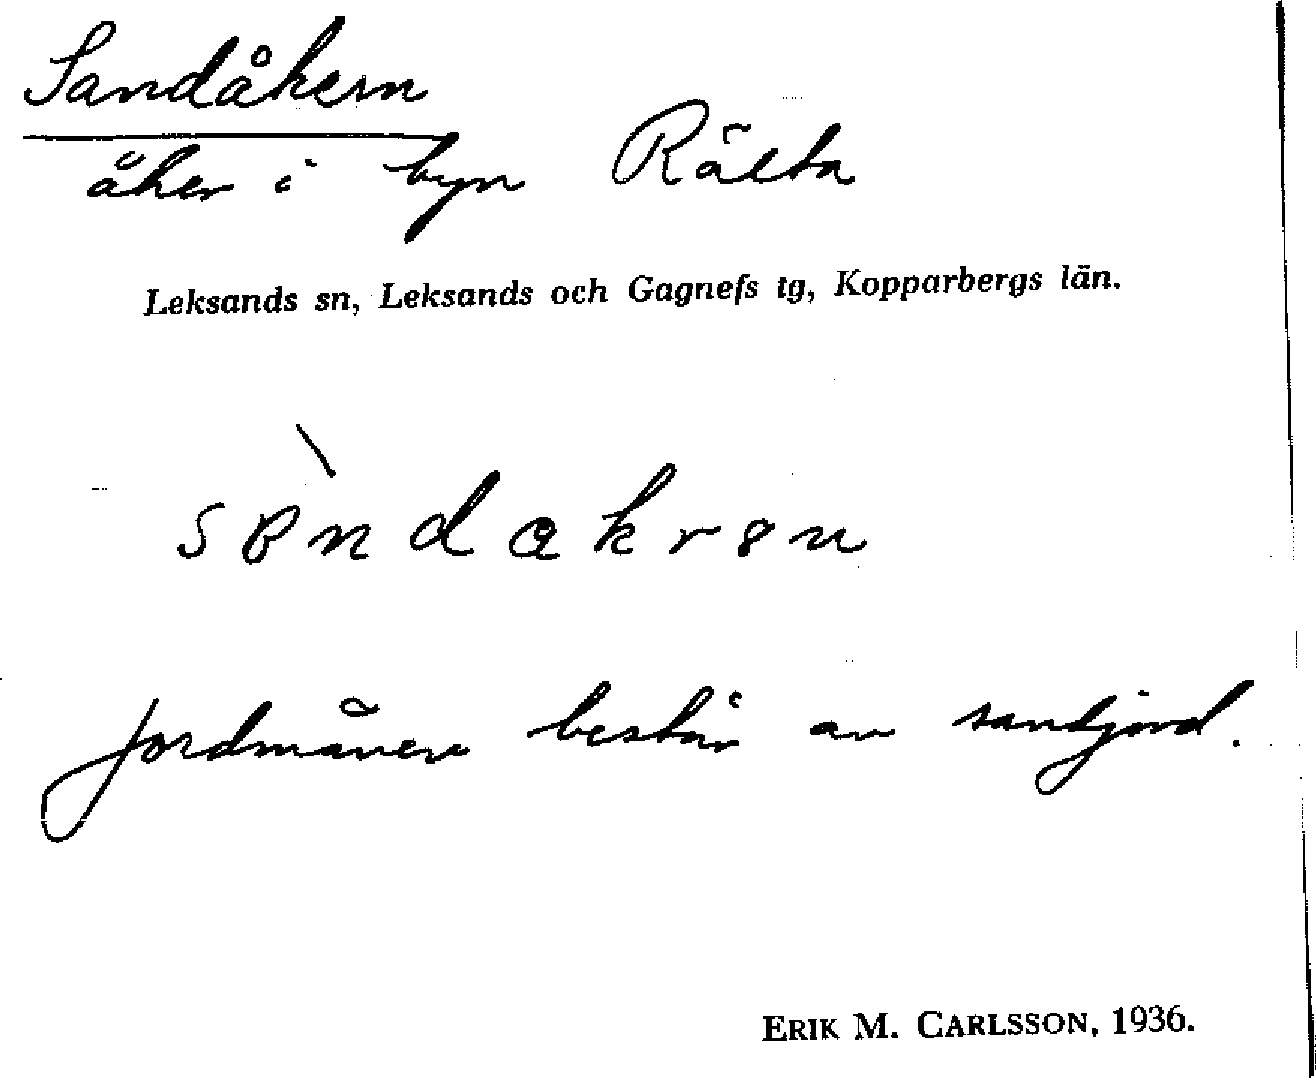 Sandåkern
åker i byn Rälta
Leksands sn, Leksands och Gagnefs tg, Kopparbergs län.
Jordmånen består av sandjord.
ERIK M. CARLSSON, 1936.